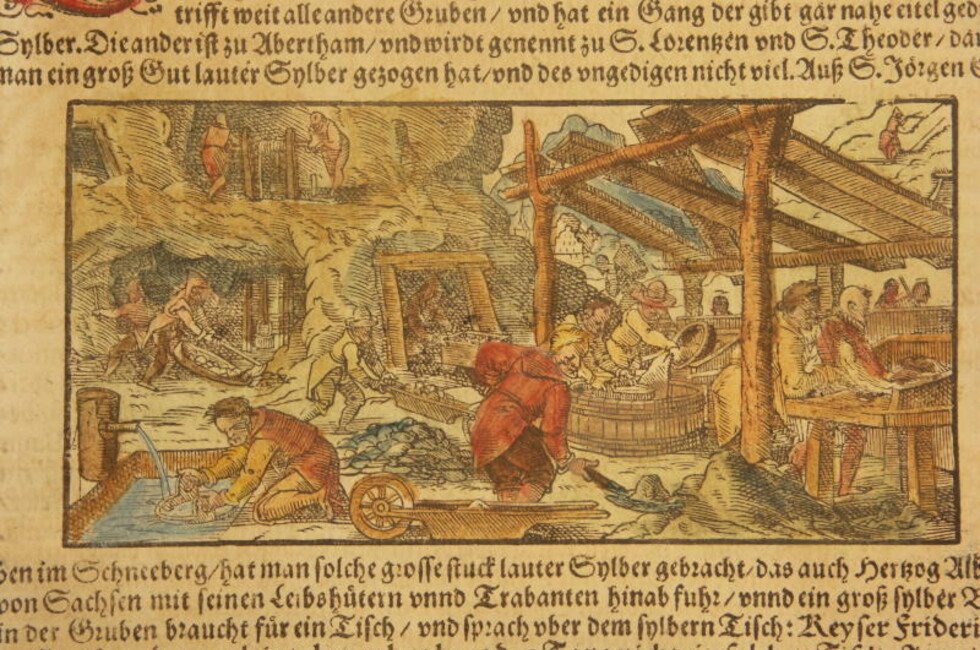 trifft weit alle andere Gruben / vnd hat ein Gang der gibt gar nahe eitel ged
Sylber. Die ander ist zu Abertham / vnd wirdt genennt zu S. Lorentzen vnd S. Theoder / dar
man ein groß Gut lauter Sylber gezogen hat / vnd des vngedigen nicht viel. Auß S. Jörgen
ben im Schneeberg / hat man solche grosse stuck lauter Sylber gebracht / das auch Hertzog Alb
von Sachsen mit seinen Leibshütern vnnd Trabanten hinab fuhr / vnnd ein groß sylber
in der Gruben braucht für ein Tisch / vnd sprach vber dem sylbern Tisch: Keyser Frideri